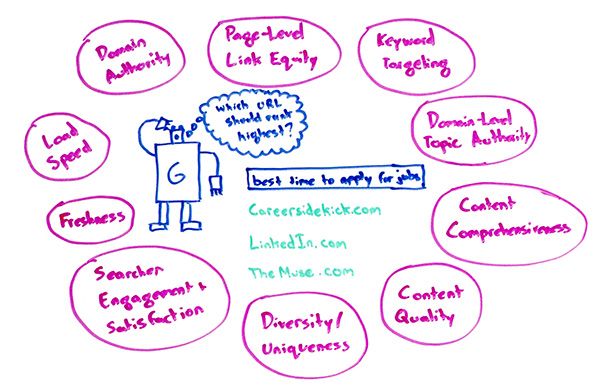 Domain
Authority
Page-Level
Link Equity
Keyword
Targeting
Load
Speed
Which URL
should rank
highest?
G
Domain-Level
Topic Authority
best time to apply for jobs
Freshness
Careersidekick.com
LinkedIn.com
The Muse.com
Content
Comprehensiveness
Searcher
Engagement +
Satisfaction
Diversity/
Uniqueness
Content
Quality